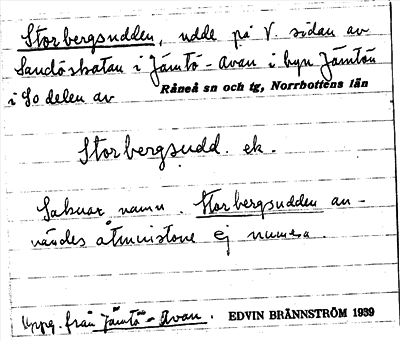 Storbergsudden, udde på V. sidan av
Sandöskatan i Jämtö-Avan i byn Jämtön
i So delen av Råneå sn och tg, Norrbottens län
Storbergsudd. ek.
Saknar namn. Storbergsudden an-
vändes åtminstone ej numera.
Uppg. från Jämtö-Avan. EDVIN BRÄNNSTRÖM 1939